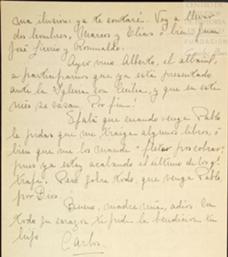 una ilusión: ya te contaré. Voy a llevar
dos hombres, Marcos y Elías ó bien Juan
José Sierra y Romualdo.
Ayer vino Alberto, el albañil,
a participarnos que ya está presentado
ante la Iglesia con Emilia, y que en este
mes se casan. Por fin!
Espero que cuando venga Pablo
le pidas que me traiga algunos libros, ó
bien que me los mande a flete por cobrar,
pues ya estoy acabando el último de los q'
traje. Pero sobre todo, que venga Pablo,
por Dios!
Bueno, madre mía, adiós. Con
todo su corazón te pide la bendición tu
hijo
Carlos
FUNDACIÓN